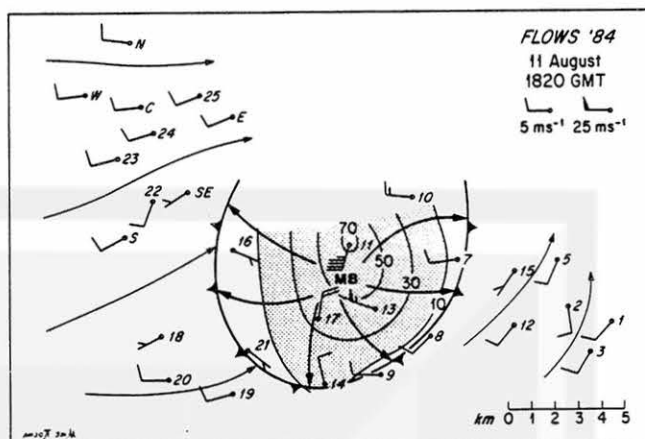 FLOWS '84
11 August
1820 GMT
5 ms⁻¹ 25 ms⁻¹
N
W
C
25
E
24
23
22
SE
S
10
16
70
11
50
7
MB
30
15
5
10
2
17
13
12
1
18
8
3
21
20
19
14
9
km 0 1 2 3 4 5